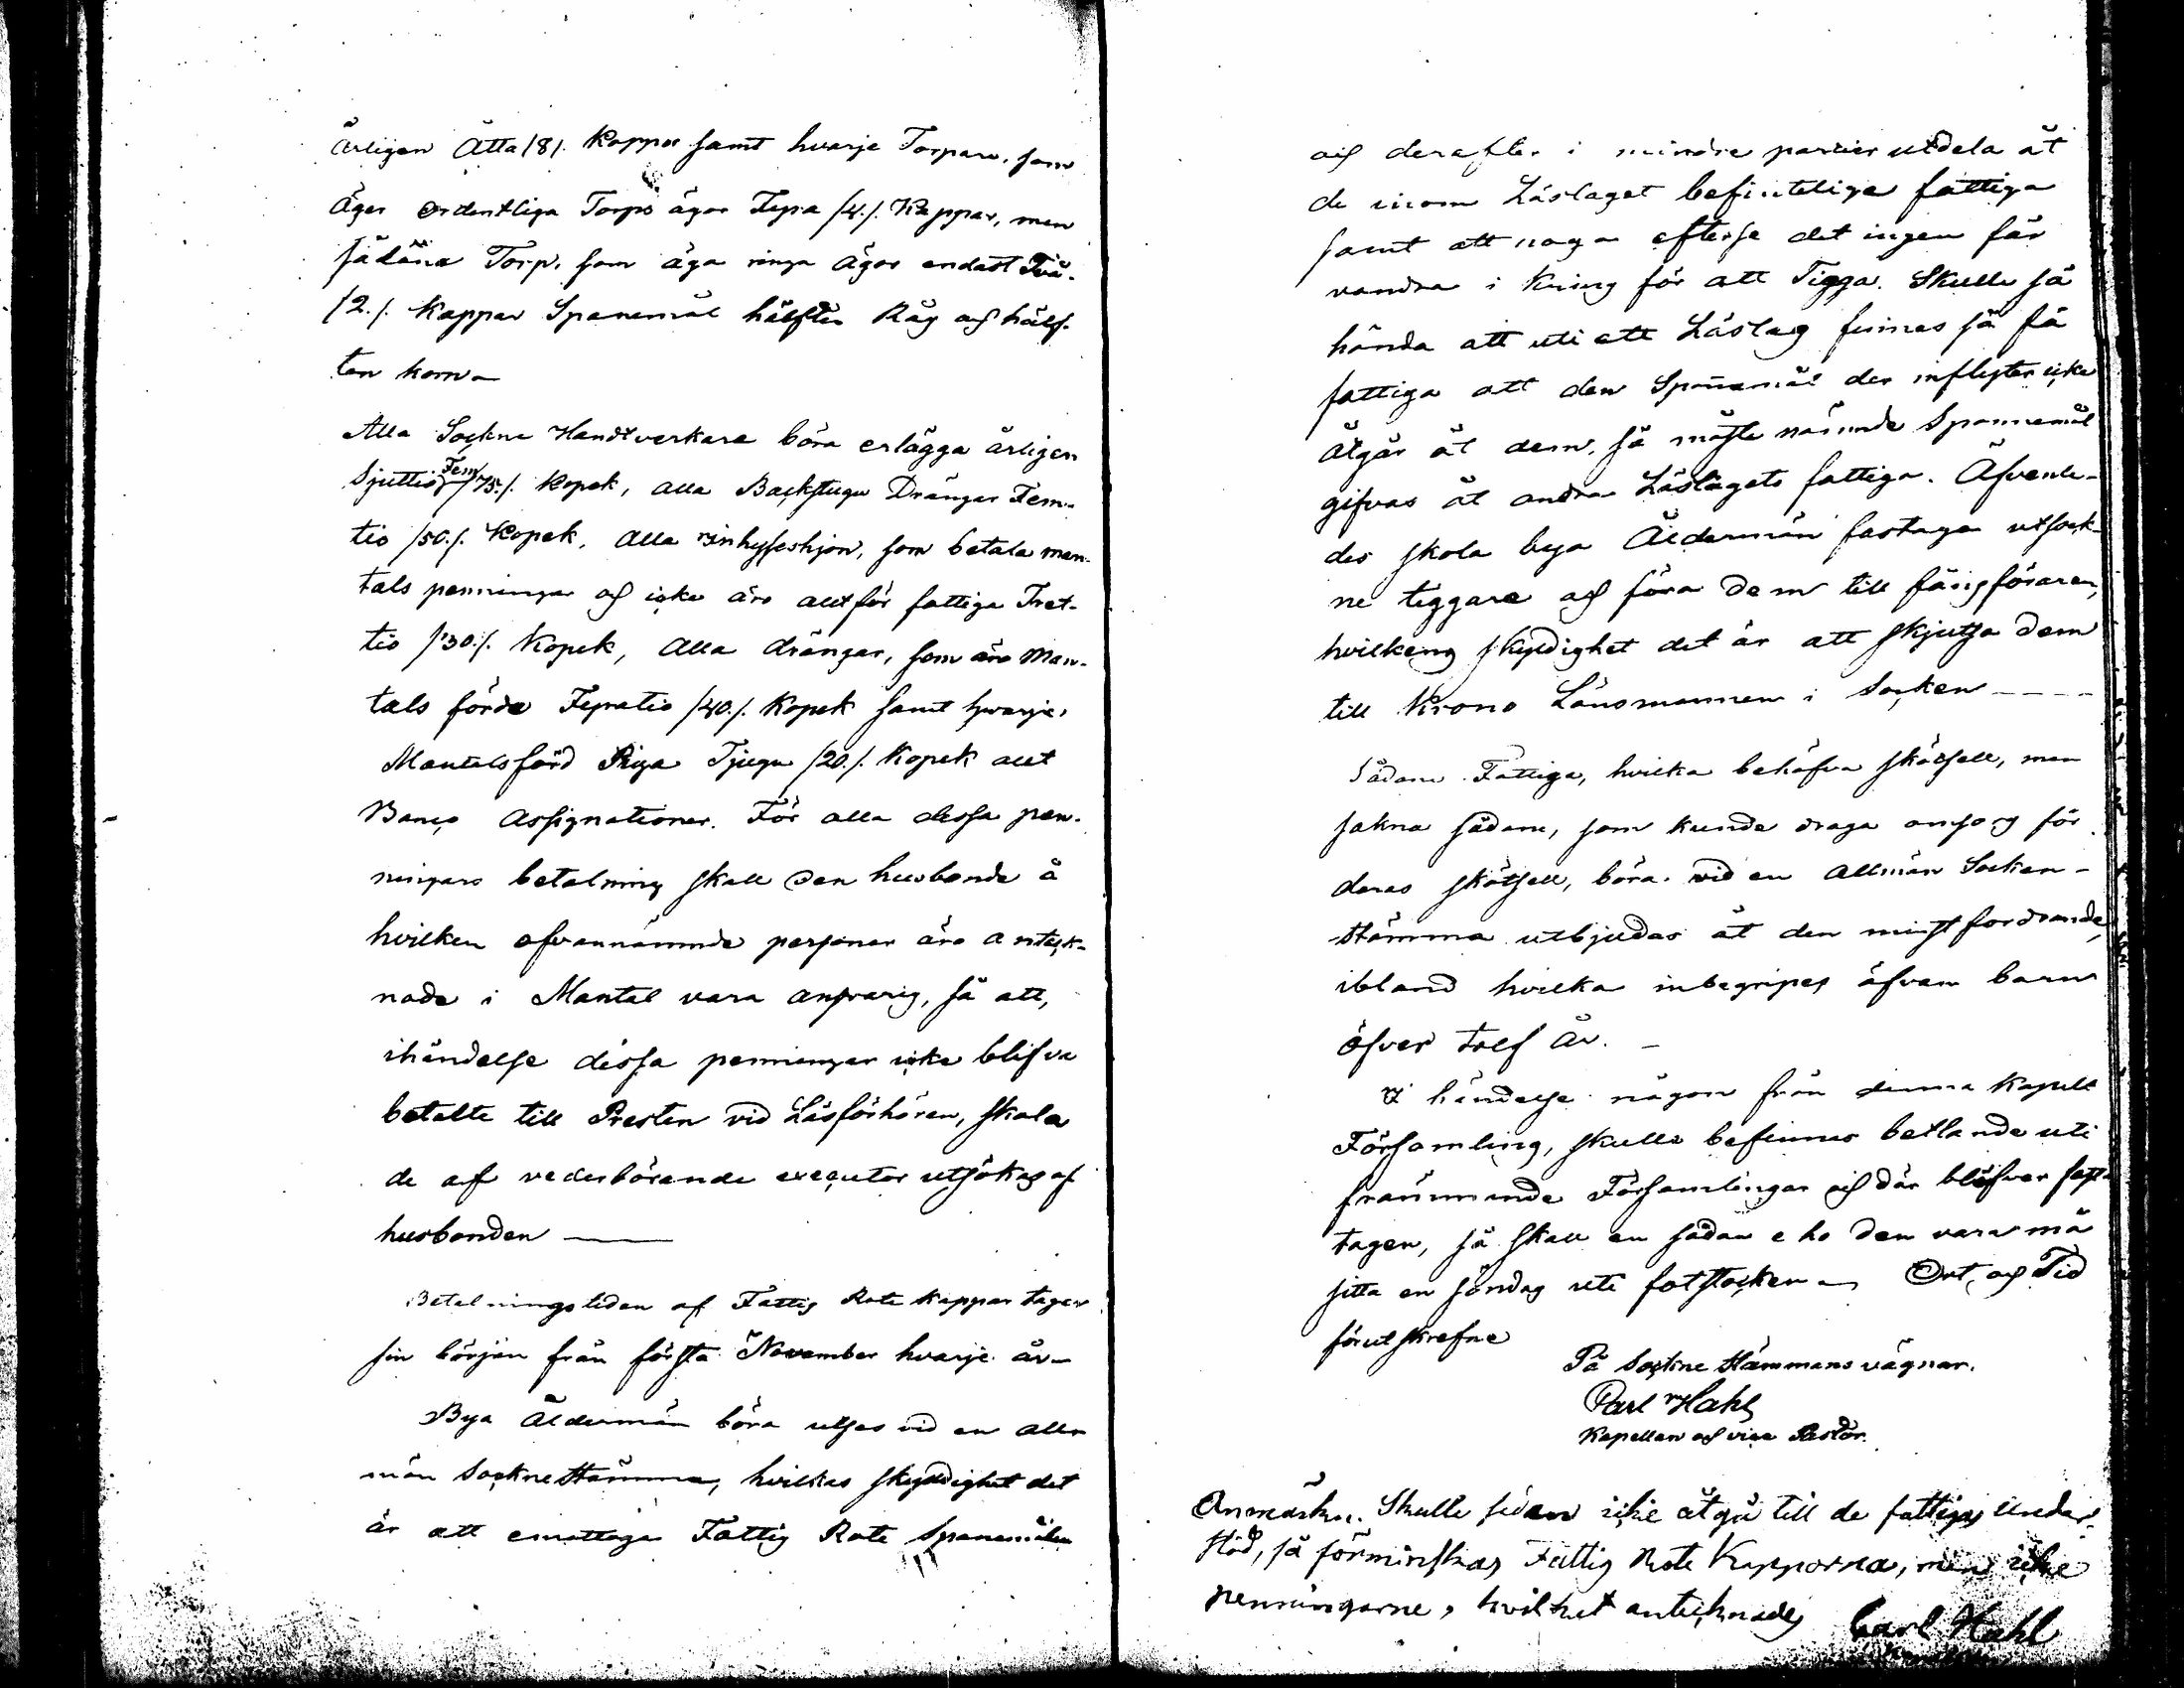 Årligen Åtta /8/. Kappar samt hvarje Torpare, som
Äger ordentliga Torps ägor Fyra /4./. Kappar, men
sådane Torp. som äga ringa Ägor endast Två.
/2./. Kappar Spanemål hälften Råg och hälf-
ten korn
Alla Sockne Handtverkare böra erlägga årligen
Sjuttio Fem /75./. Kopek, alla Backstugu Drängar Fem-
tio /50./. Kopek, alla inhyseshjon, som betala man-
tals penningar och icke äro alltför fattiga Tret-
tio /30./. Kopek, Alla drängar, som äro Man-
tals förde Fyratio /40./. Kopek samt hvarje
Mantalsförd Piga Tjugu /20./. Kopek allt
Banco Assignationer. För alla dessa pen-
ningars betalning skall den husbonde å
hvilken ofvannämnde personer äro anteck-
nade i Mantal vara ansvarig, så att,
ihändelse dessa penningar icke blifva
betalte till Presten vid Läsförhören, skola
de af vederbörande executor utsökas af
husbonden
Betalningstiden af Fattig Rote kappar tager
sin början från första November hvarje år
Bya Åldermän böra utses vid en allm
män Sockne Stämma, hvilkas skyldighet det
är att emottaga Fattig Rote Spanemålen
och derefter i mindre partier utdela åt
de inom Läslaget befintelige fattiga
samt att noga efterse det ingen får
vandra i kring för att Tigga. Skulle så
hända att uti ett Läslag finnas så få
fattiga att den Spanemål der inflyter icke
åtgår åt dem, så måste nämnde Spannemål
gifvas åt andra Läslagets fattiga. Äfvenle-
des skola bya Åldermän fastaga utsock-
ne tiggare och föra dem till fångföraren,
hvilkens skyldighet det är att skjutsa dem
till Krono Länsmannen i Socken
Sådane Fattige, hvilka behöfva skötsell, men
sakna sådane, som kunde draga omsorg för
deras skötsell, böra vid en Allmän Socken-
stämma utbjudas åt den minst fordrande,
ibland hvilka inbegripes äfven barn
öfver tolf År.
I händelse någon från denna Kapell
Församling, skulle befinnas betlande uti
främmande Församlingar och där blifver fast-
tagen, så skall en sådan eho den vara må
sitta en söndag uti fotstocken Ort och Tid
förutskrefne
På Sockne Stämmans vägnar.
Carl Hahl
Kapellan och vice Pastor.
Anmärkn. Skulle sedan icke åtgå till de fattigas Under-
stöd, så förminskas Fattig Rote Kapporna, men icke
penningarne, hvilket antecknades Carl Hahl